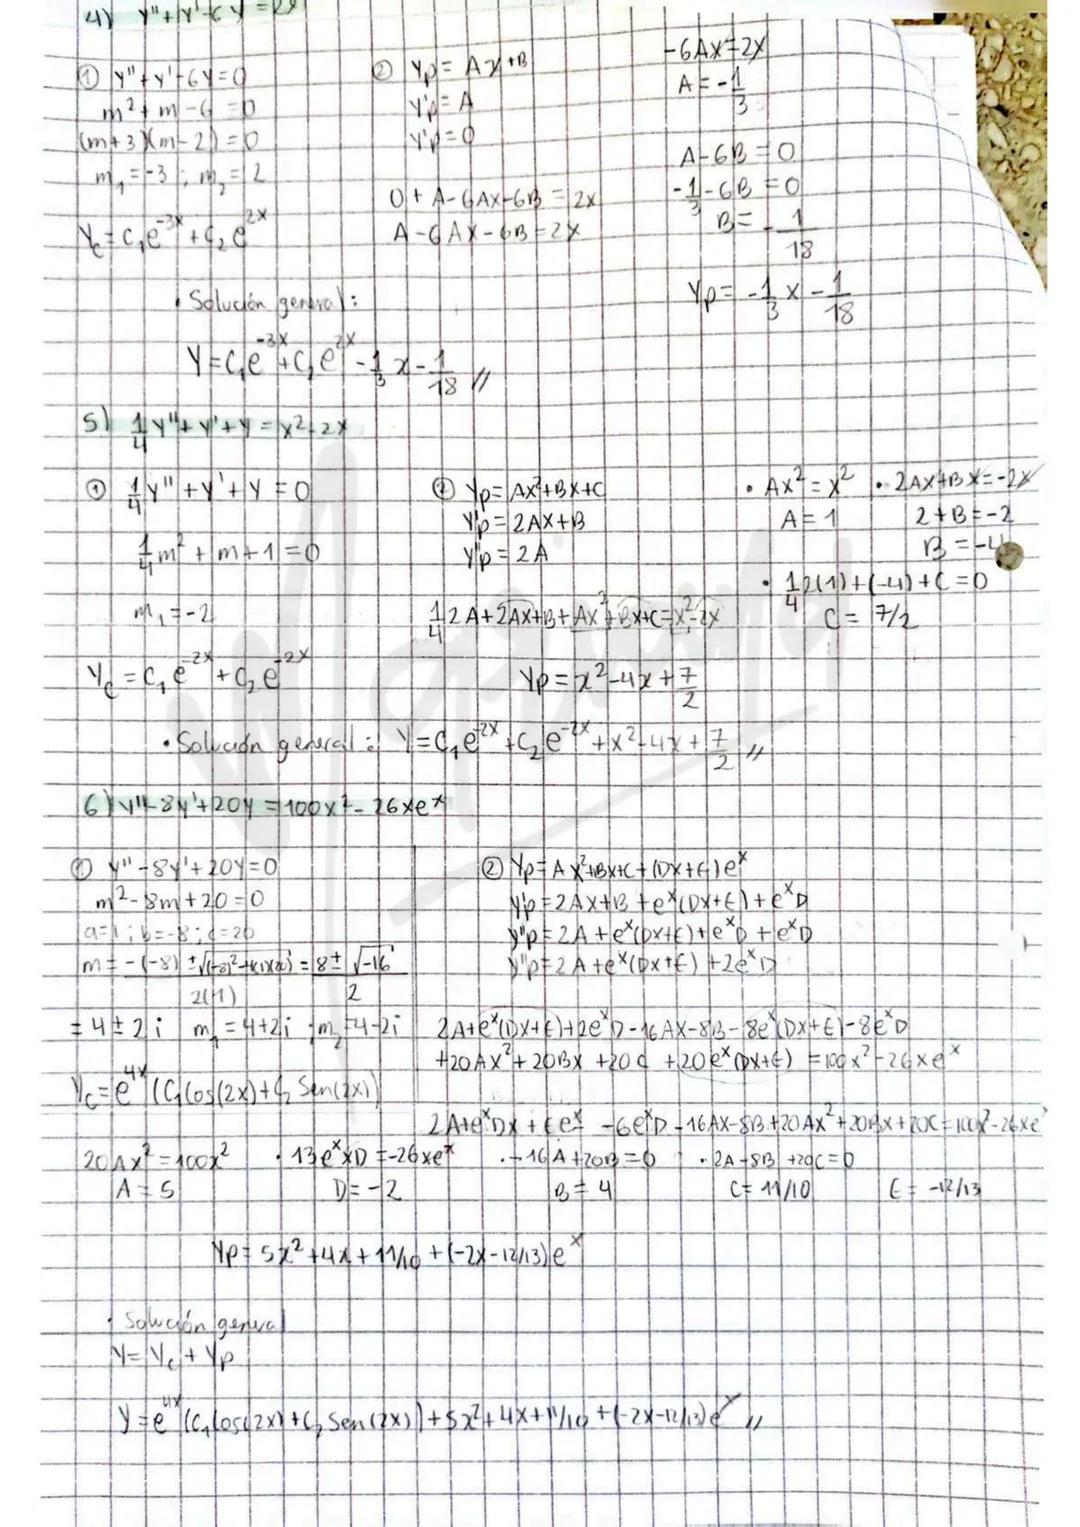 4) y''+y'-6y=2x
① y''+y'-6y=0
m²+m-6=0
(m+3)(m-2)=0
m₁=-3; m₂=2
Yc=C₁e^-3x+C₂e^2x
② Yp=Ax+B
Y'p=A
Y''p=0
0+A-6Ax-6B=2x
A-6Ax-6B=2x
-6Ax=2x
A=-1/3
A-6B=0
-1/3-6B=0
B=-1/18
Yp=-1/3x-1/18
• Solución general:
Y=C₁e^-3x+C₂e^2x-1/3x-1/18 //
5) 1/4y''+y'+y=x²-2x
① 1/4y''+y'+y=0
1/4m²+m+1=0
m₁=-2
Yc=C₁e^-2x+C₂e^-2x
② Yp=Ax²+Bx+C
Y'p=2Ax+B
Y''p=2A
1/4 2A+2Ax+B+Ax²+Bx+C=x²-2x
Yp=x²-4x+7/2
• Ax²=x²
A=1
• 2Ax+Bx=-2x
2+B=-2
B=-4
• 1/4 2(1)+(-4)+C=0
C=7/2
• Solución general: Y=C₁e^-2x+C₂e^-2x+x²-4x+7/2 //
6) y''-8y'+20y=100x²-26xe^x
① y''-8y'+20y=0
m²-8m+20=0
a=1; b=-8; c=20
m=-(-8)±√(-8)²-4(1)(20)/2(1)=8±√-16/2
=4±2i m₁=4+2i; m₂=4-2i
Yc=e^4x(C₁Cos(2x)+C₂Sen(2x))
② Yp=Ax²+Bx+C+(Dx+E)e^x
Y'p=2Ax+B+e^x(Dx+E)+e^xD
y''p=2A+e^x(Dx+E)+e^xD+e^xD
y''p=2A+e^x(Dx+E)+2e^xD
2A+e^x(Dx+E)+2e^xD-16Ax-8B-8e^x(Dx+E)-8e^xD
+20Ax²+20Bx+20C+20e^x(Dx+E)=100x²-26xe^x
2A+e^xDx+Ee^x-6e^xD-16Ax-8B+20Ax²+20Bx+20C=100x²-26xe^x
20Ax²=100x² • 13e^xxD=-26xe^x • -16A+20B=0 • 2A-8B+20C=0
A=5 D=-2 B=4 C=11/10 E=-12/13
Yp=5x²+4x+11/10+(-2x-12/13)e^x
• Solución general
Y=Yc+Yp
Y=e^4x(C₁Cos(2x)+C₂Sen(2x))+5x²+4x+11/10+(-2x-12/13)e^x //